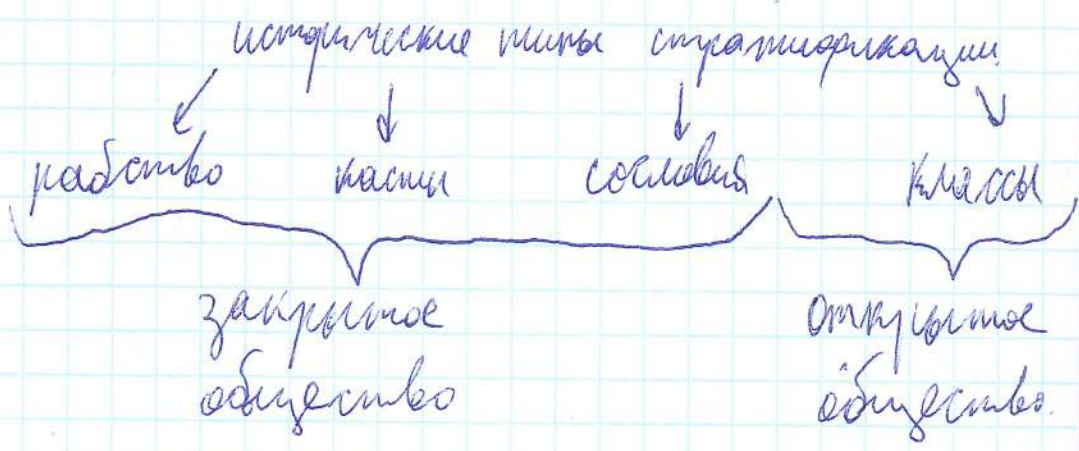 исторические типы стратификации
рабство касты сословия классы
закрытое открытое
общество общество.